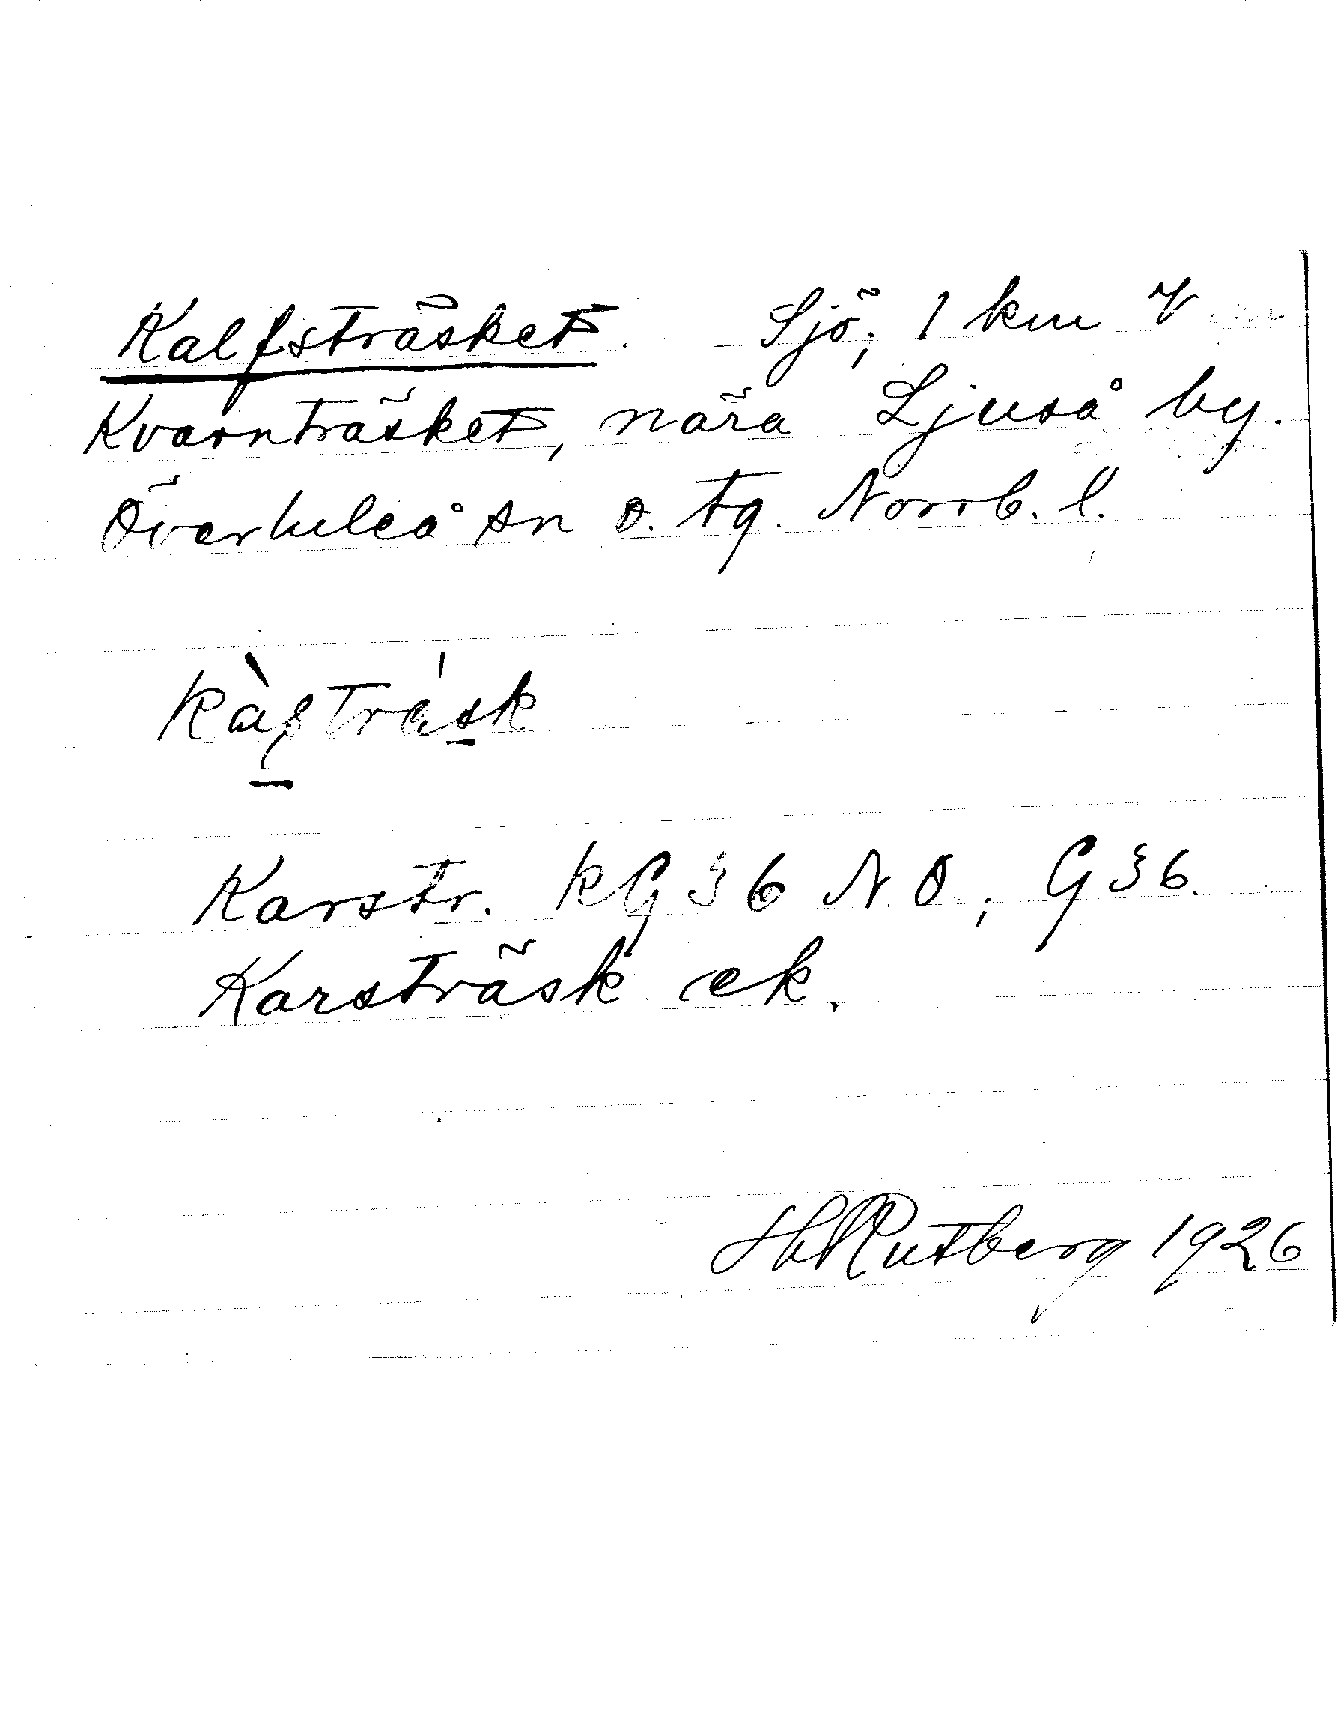 Kalfsträsket. Sjö, 1 km V
Kvarnträsket, nära Ljuså by.
Överluleå sn o. tg. Norrb. l.
Karstr. KG 36 NO; G 36.
Karsträsk ek.
H Rutberg 1926